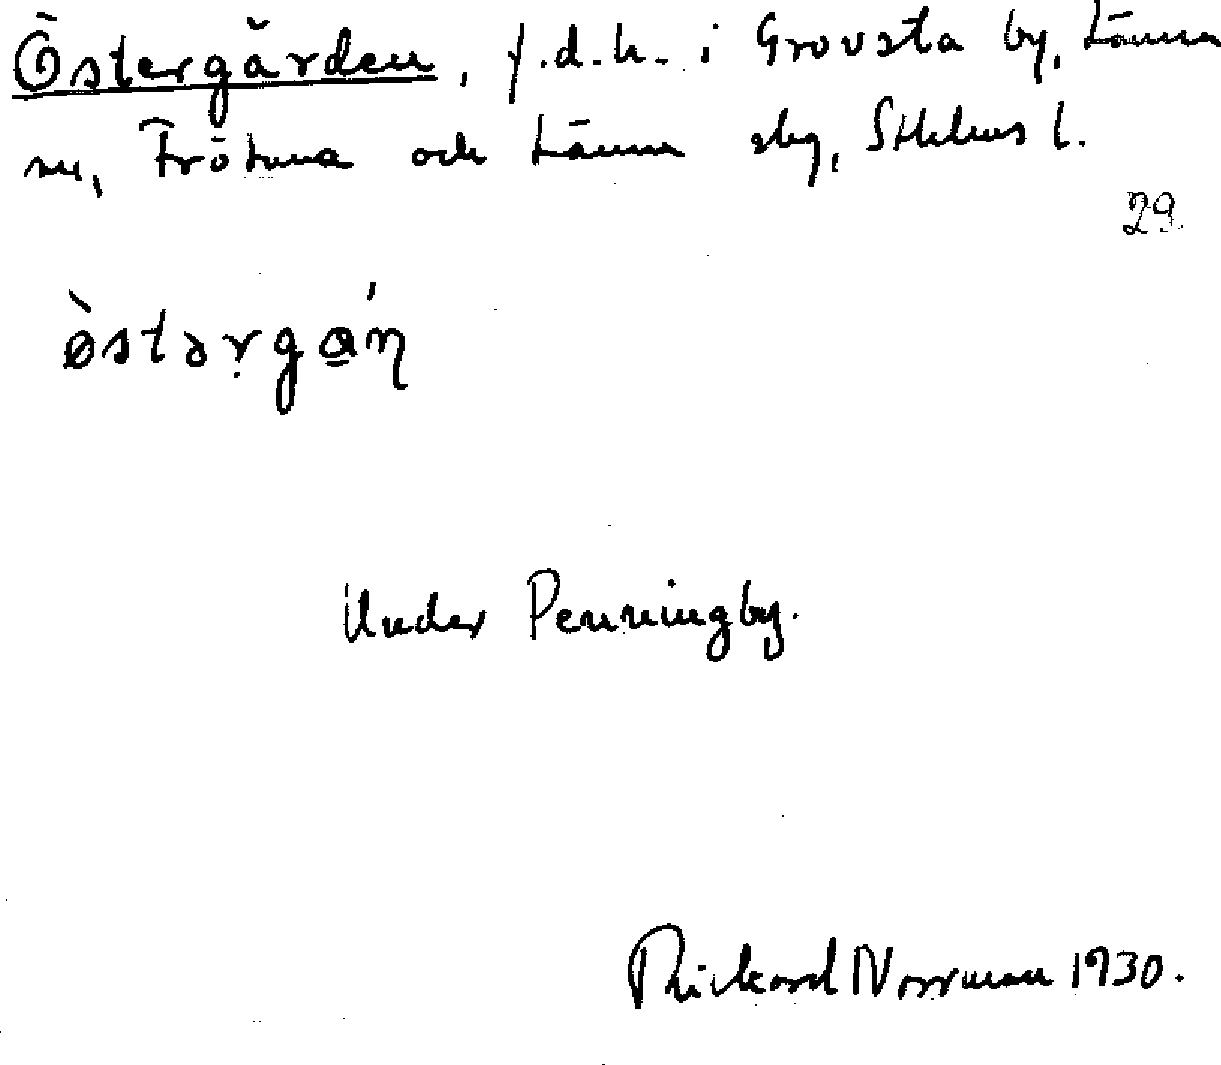 Östergården, f.d.h. i Grovsta by, Länna
sn, Frötuna och Länna skg, Sthlms l.
29.
ø̀stərgɑ́ɳ
Under Penningby.
Rickard Norrman 1930.